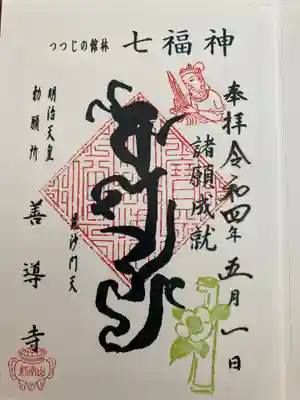 つつじの館林七福神
奉拝 令和四年五月一日
諸願成就
毘沙門天
明治天皇
勅願所
善導寺